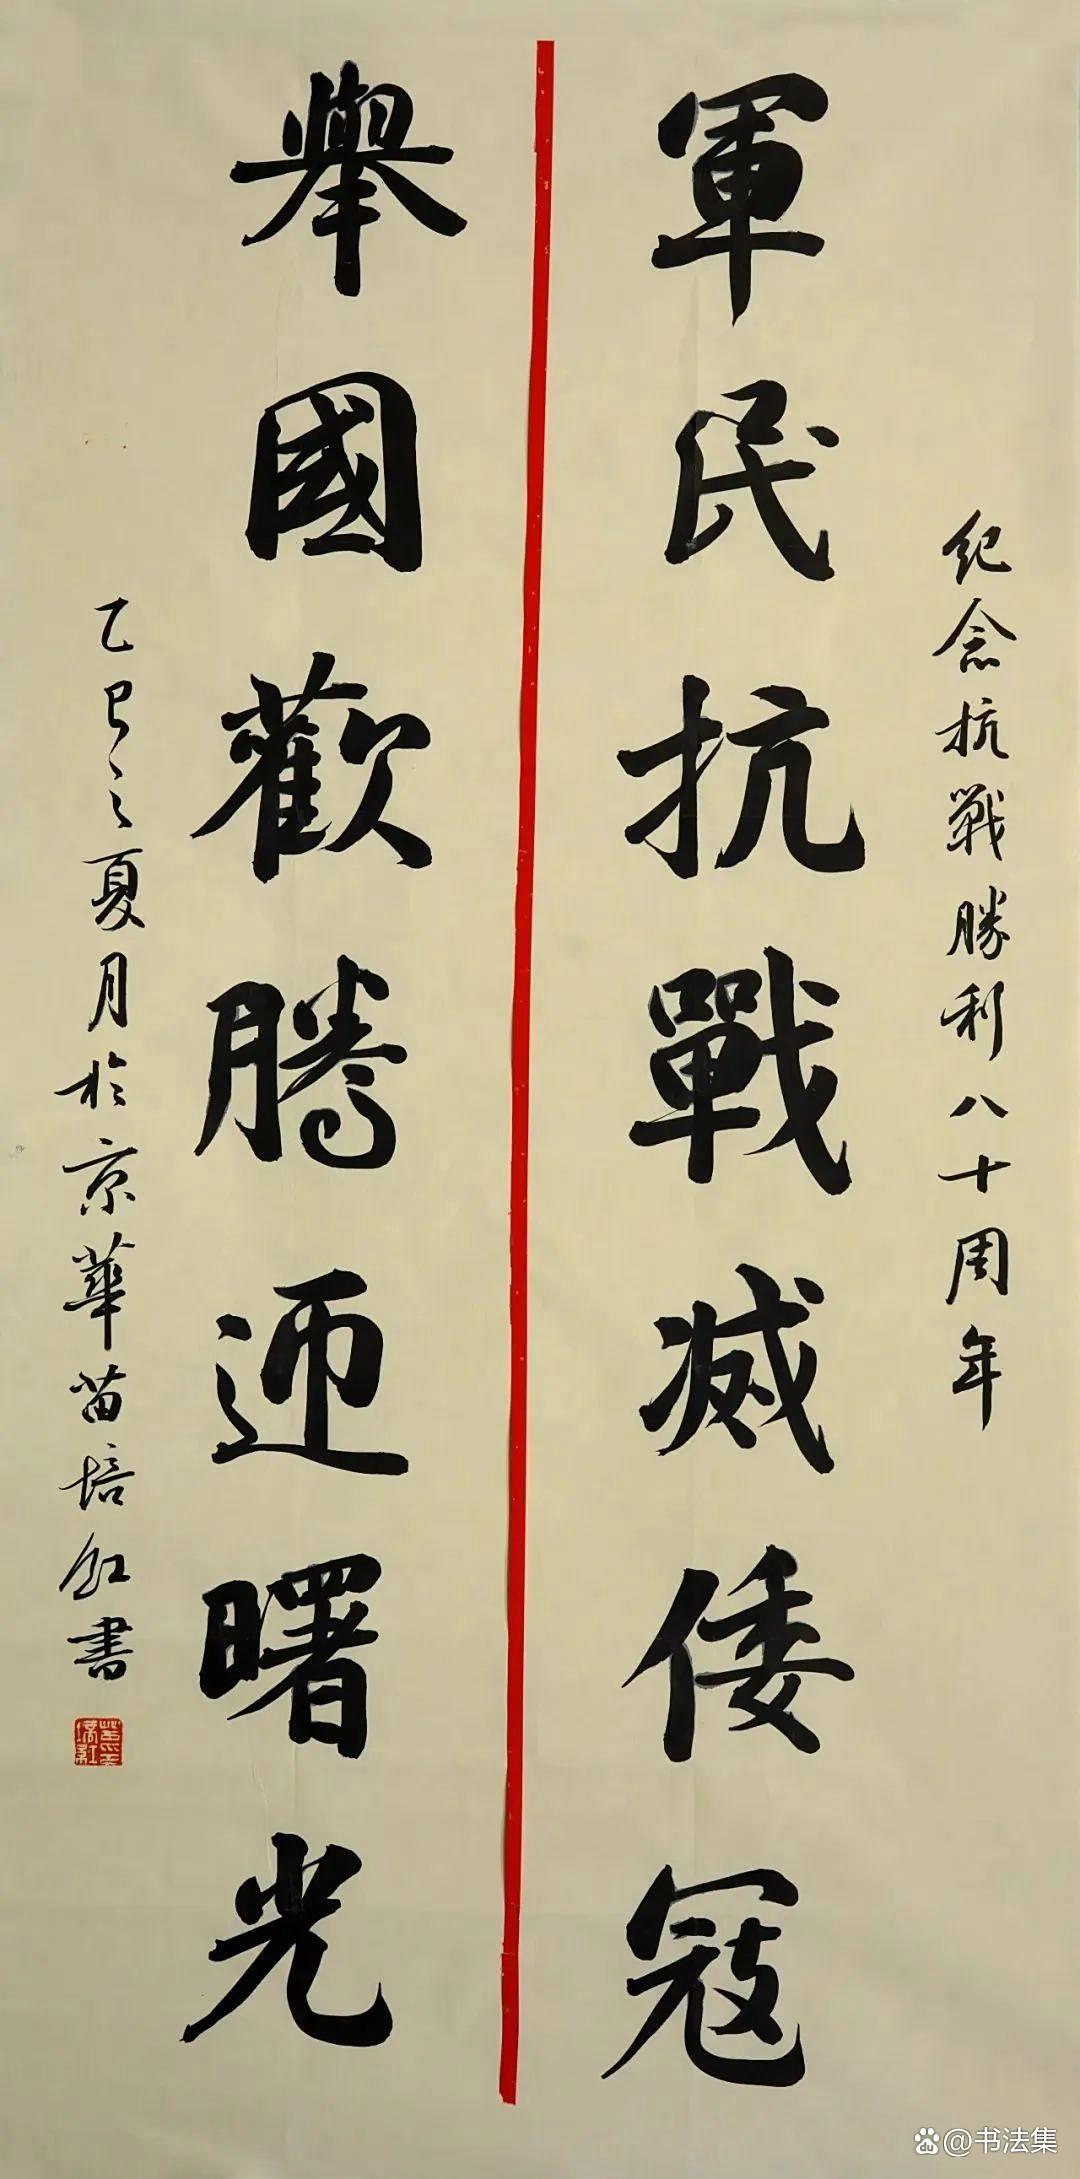 紀念抗戰勝利八十周年
軍民抗戰滅倭寇
舉國歡騰迎曙光
乙巳之夏月於京華苗培紅書
@书法集